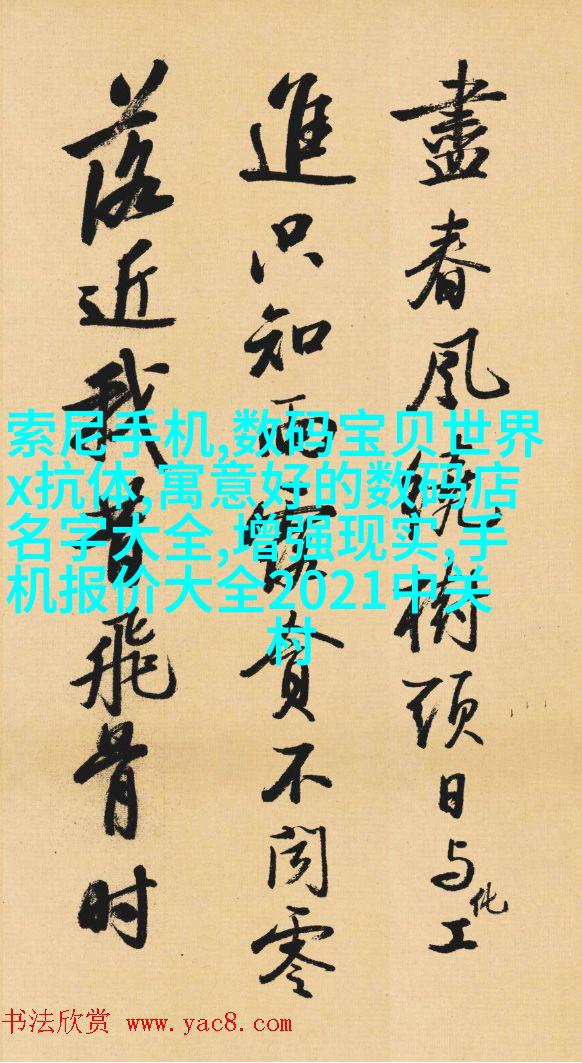 盡春風繞樹頭日与化工
進只知雨露貪不聞零
落近我昔飛骨时
索尼手机,数码宝贝世界
x抗体,寓意好的数码店
名字大全,增强现实,手
机报价大全2021中关
村
书法欣赏 www.yac8.com